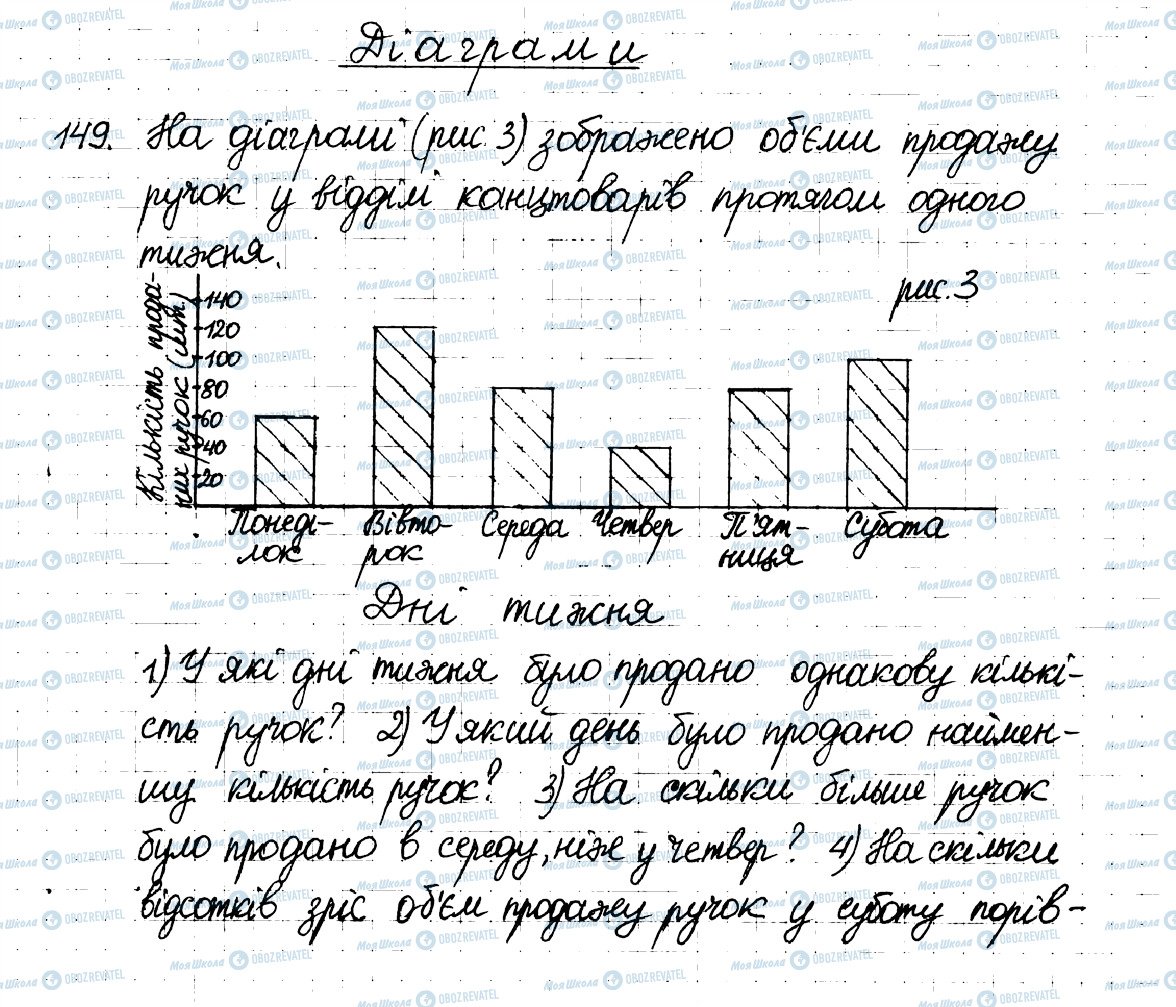 Діаграми
149. На діаграмі (рис. 3) зображено об'єми продажу
ручок у відділі канцтоварів протягом одного
тижня.
рис. 3
Кількість прода-
них ручок (шт.)
140
120
100
80
60
40
20
Понеді-
лок
Вівто-
рок
Середа
Четвер
П'ят-
ниця
Субота
Дні тижня
1) У які дні тижня було продано однакову кількі-
сть ручок? 2) У який день було продано наймен-
шу кількість ручок? 3) На скільки більше ручок
було продано в середу, ніж у четвер? 4) На скільки
відсотків зріс об'єм продажу ручок у суботу порів-
Моя Школа OBOZREVATEL